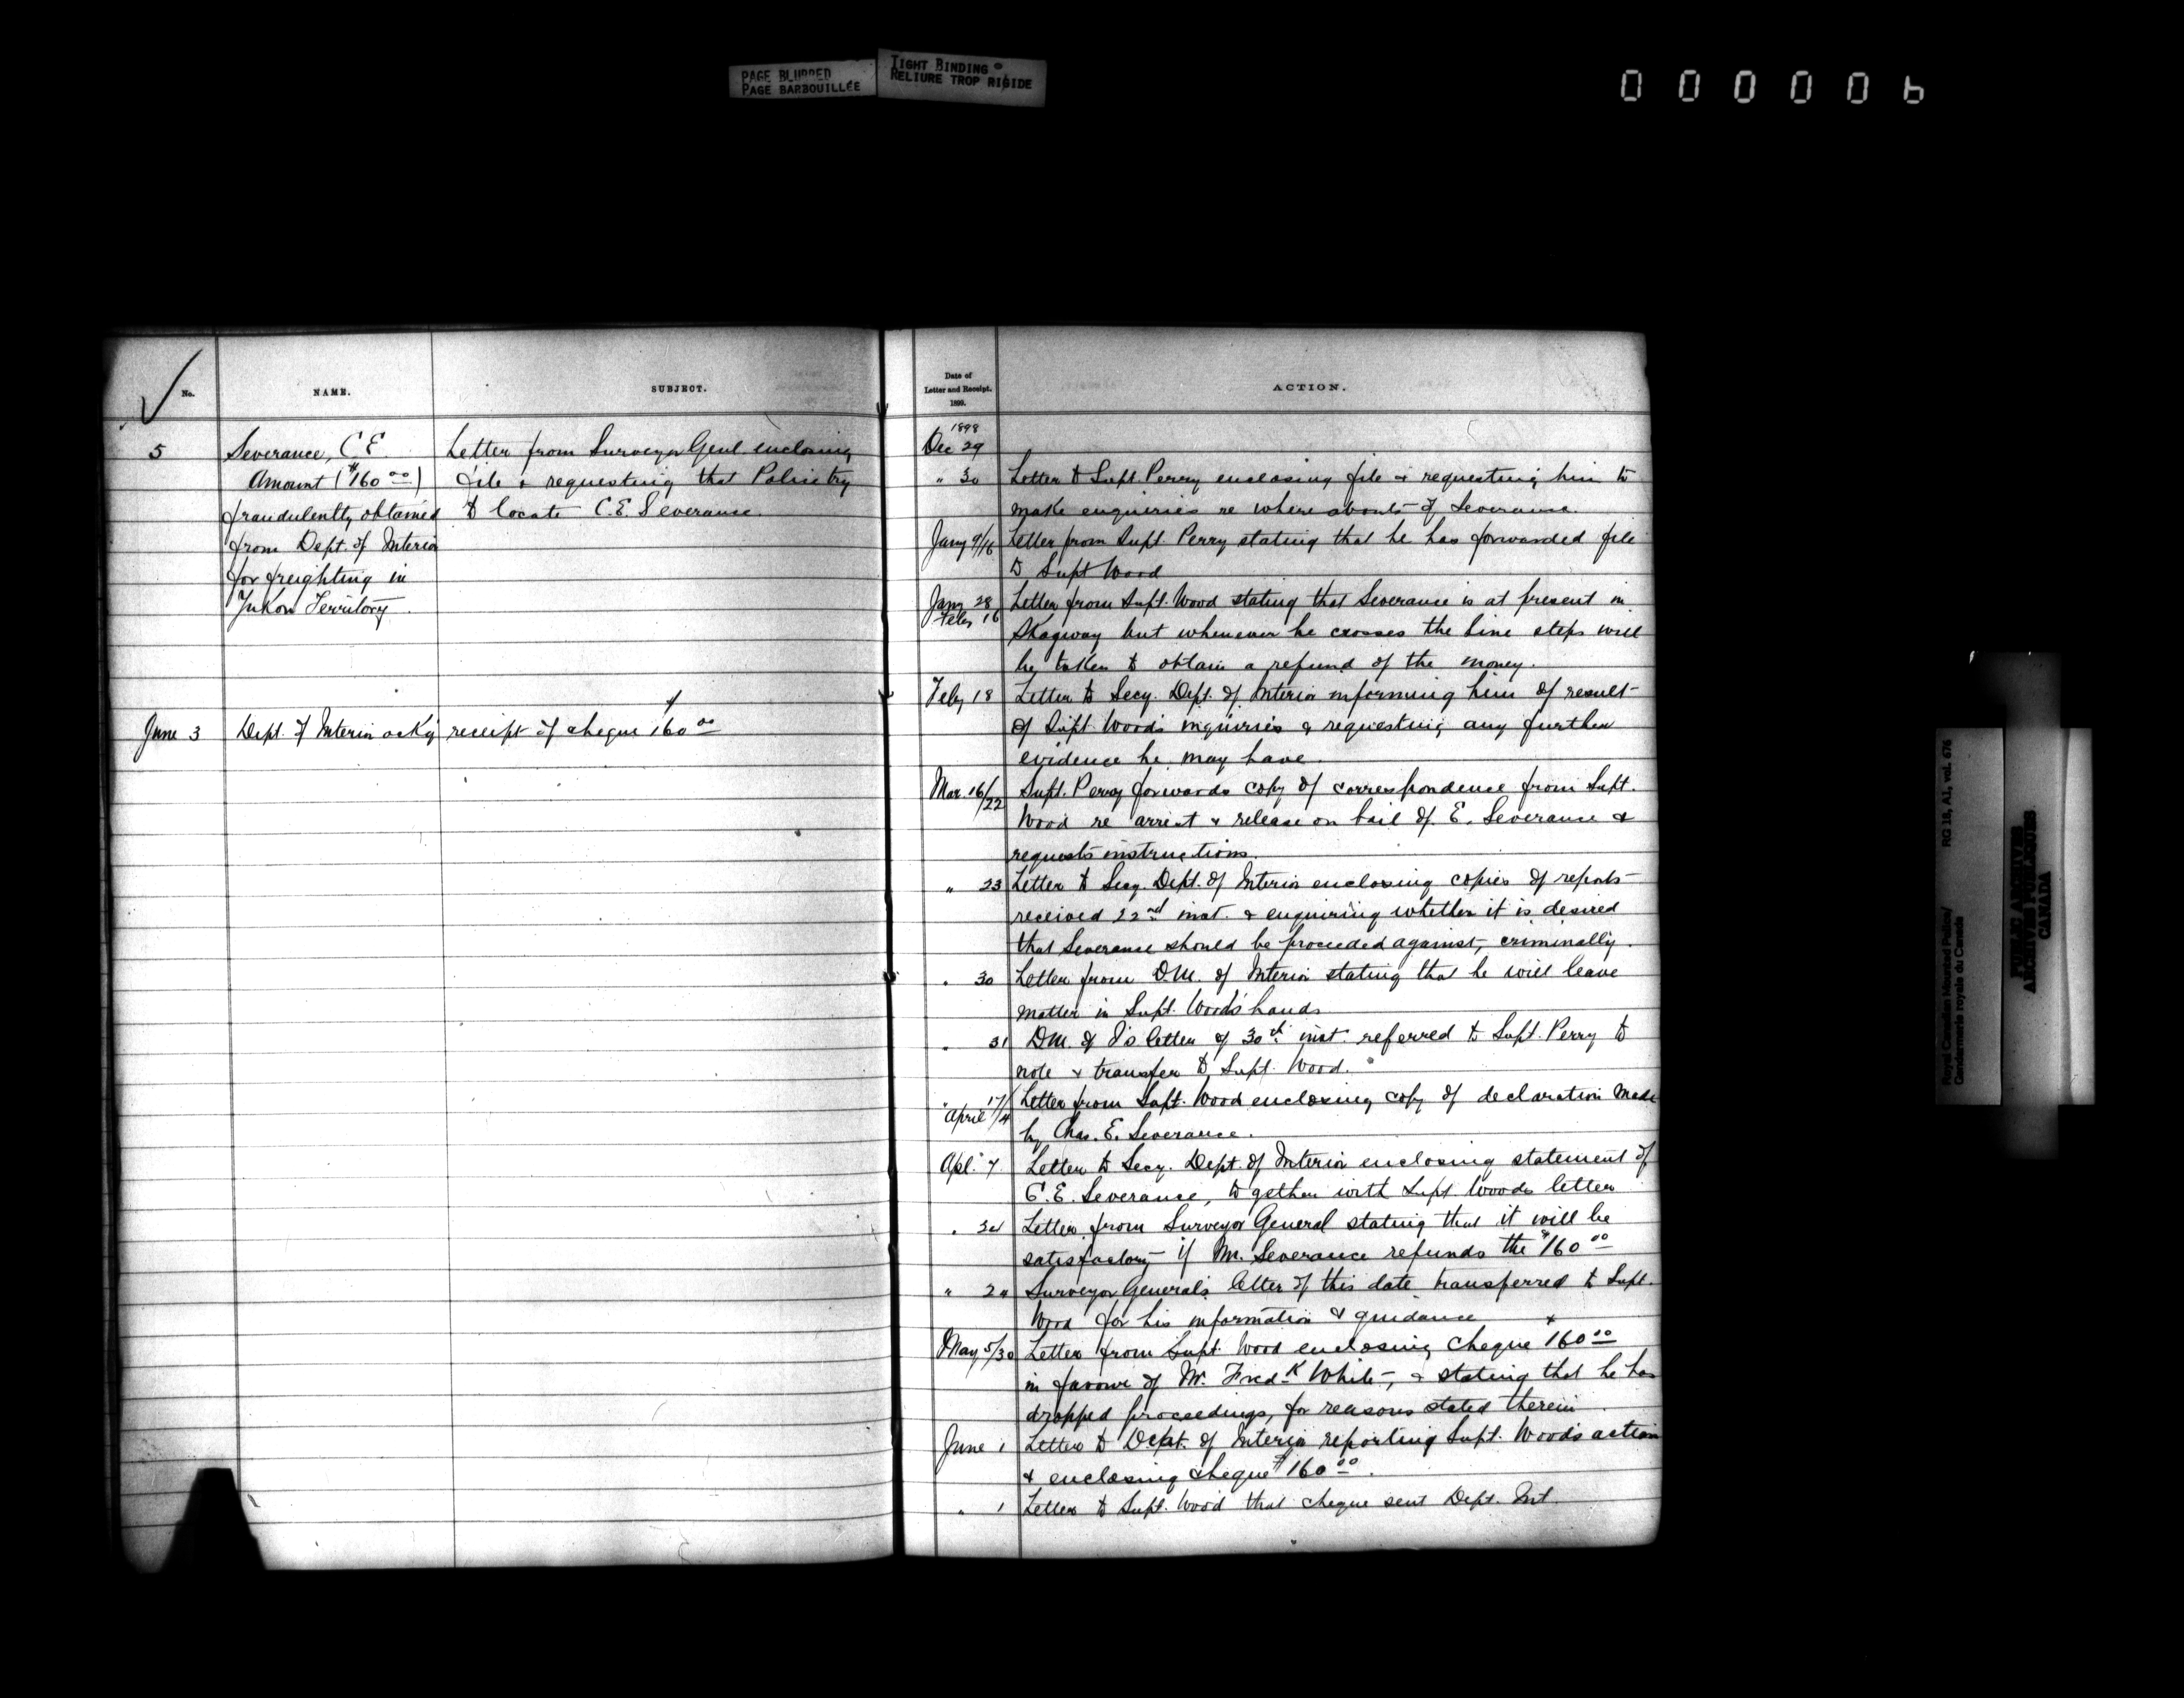 PAGE BLURRED
PAGE BARBOUILLÉE
TIGHT BINDING
RELIURE TROP RIGIDE
000006
No.
NAME.
SUBJECT.
5
Severance, C E
Amount ($160 00)
fraudulently obtained
from Dept. of Interior
for freighting in
Yukon Territory.
Letter from Surveyor Genl. enclosing
file & requesting that Police try
to locate C.E. Severance.
June 3
Dept. of Interior ack'g
receipt of cheque $160 00
Date of
Letter and Receipt.
1899.
ACTION.
1898
Dec 29
" 30 Letter to Supt. Perry enclosing file & requesting him to
make enquiries re where abouts of Severance.
Jany 9/16 Letter from Supt. Perry stating that he has forwarded file
to Supt Wood
Jany 28
Feby 16
Letter from Supt. Wood stating that Severance is at present in
Skagway but whenever he crosses the line steps will
be taken to obtain a refund of the money.
Feby 18 Letter to Secy. Dept. of Interior informing him of result
of Supt. Wood's inquiries & requesting any further
evidence he may have.
Mar. 16/22 Supt. Perry forwards copy of correspondence from Supt.
Wood re arrest & release on bail of E. Severance &
requests instructions.
" 23 Letter to Secy. Dept. of Interior enclosing copies of reports
received 22nd inst. & enquiring whether it is desired
that Severance should be proceeded against, criminally.
" 30 Letter from D.M. of Interior stating that he will leave
matter in Supt. Wood's hands
" 31 D.M. of I's letter of 30th inst. referred to Supt. Perry to
note & transfer to Supt. Wood.
" 17
April /4
Letter from Supt. Wood enclosing copy of declaration made
by Chas. E. Severance.
Apl. 7 Letter to Secy. Dept. of Interior enclosing statement of
C.E. Severance, together with Supt. Woods letter
" Letter from Surveyor General stating that it will be
satisfactory if Mr. Severance refunds the $160 00
" Surveyor General's letter of this date transferred to Supt.
Wood for his information & guidance
May 5/30 Letter from Supt. Wood enclosing cheque $160 00
in favour of Mr. Fredk White, & stating that he has
dropped proceedings, for reasons stated therein.
June 1 Letter to Dept. of Interior reporting Supt. Wood's action
& enclosing cheque $160 00.
" 1 Letter to Supt. Wood that cheque sent Dept. Int.
Royal Canadian Mounted Police/
Gendarmerie royale du Canada
RG 18, A1, vol. 676
PUBLIC ARCHIVES
ARCHIVES PUBLIQUES
CANADA